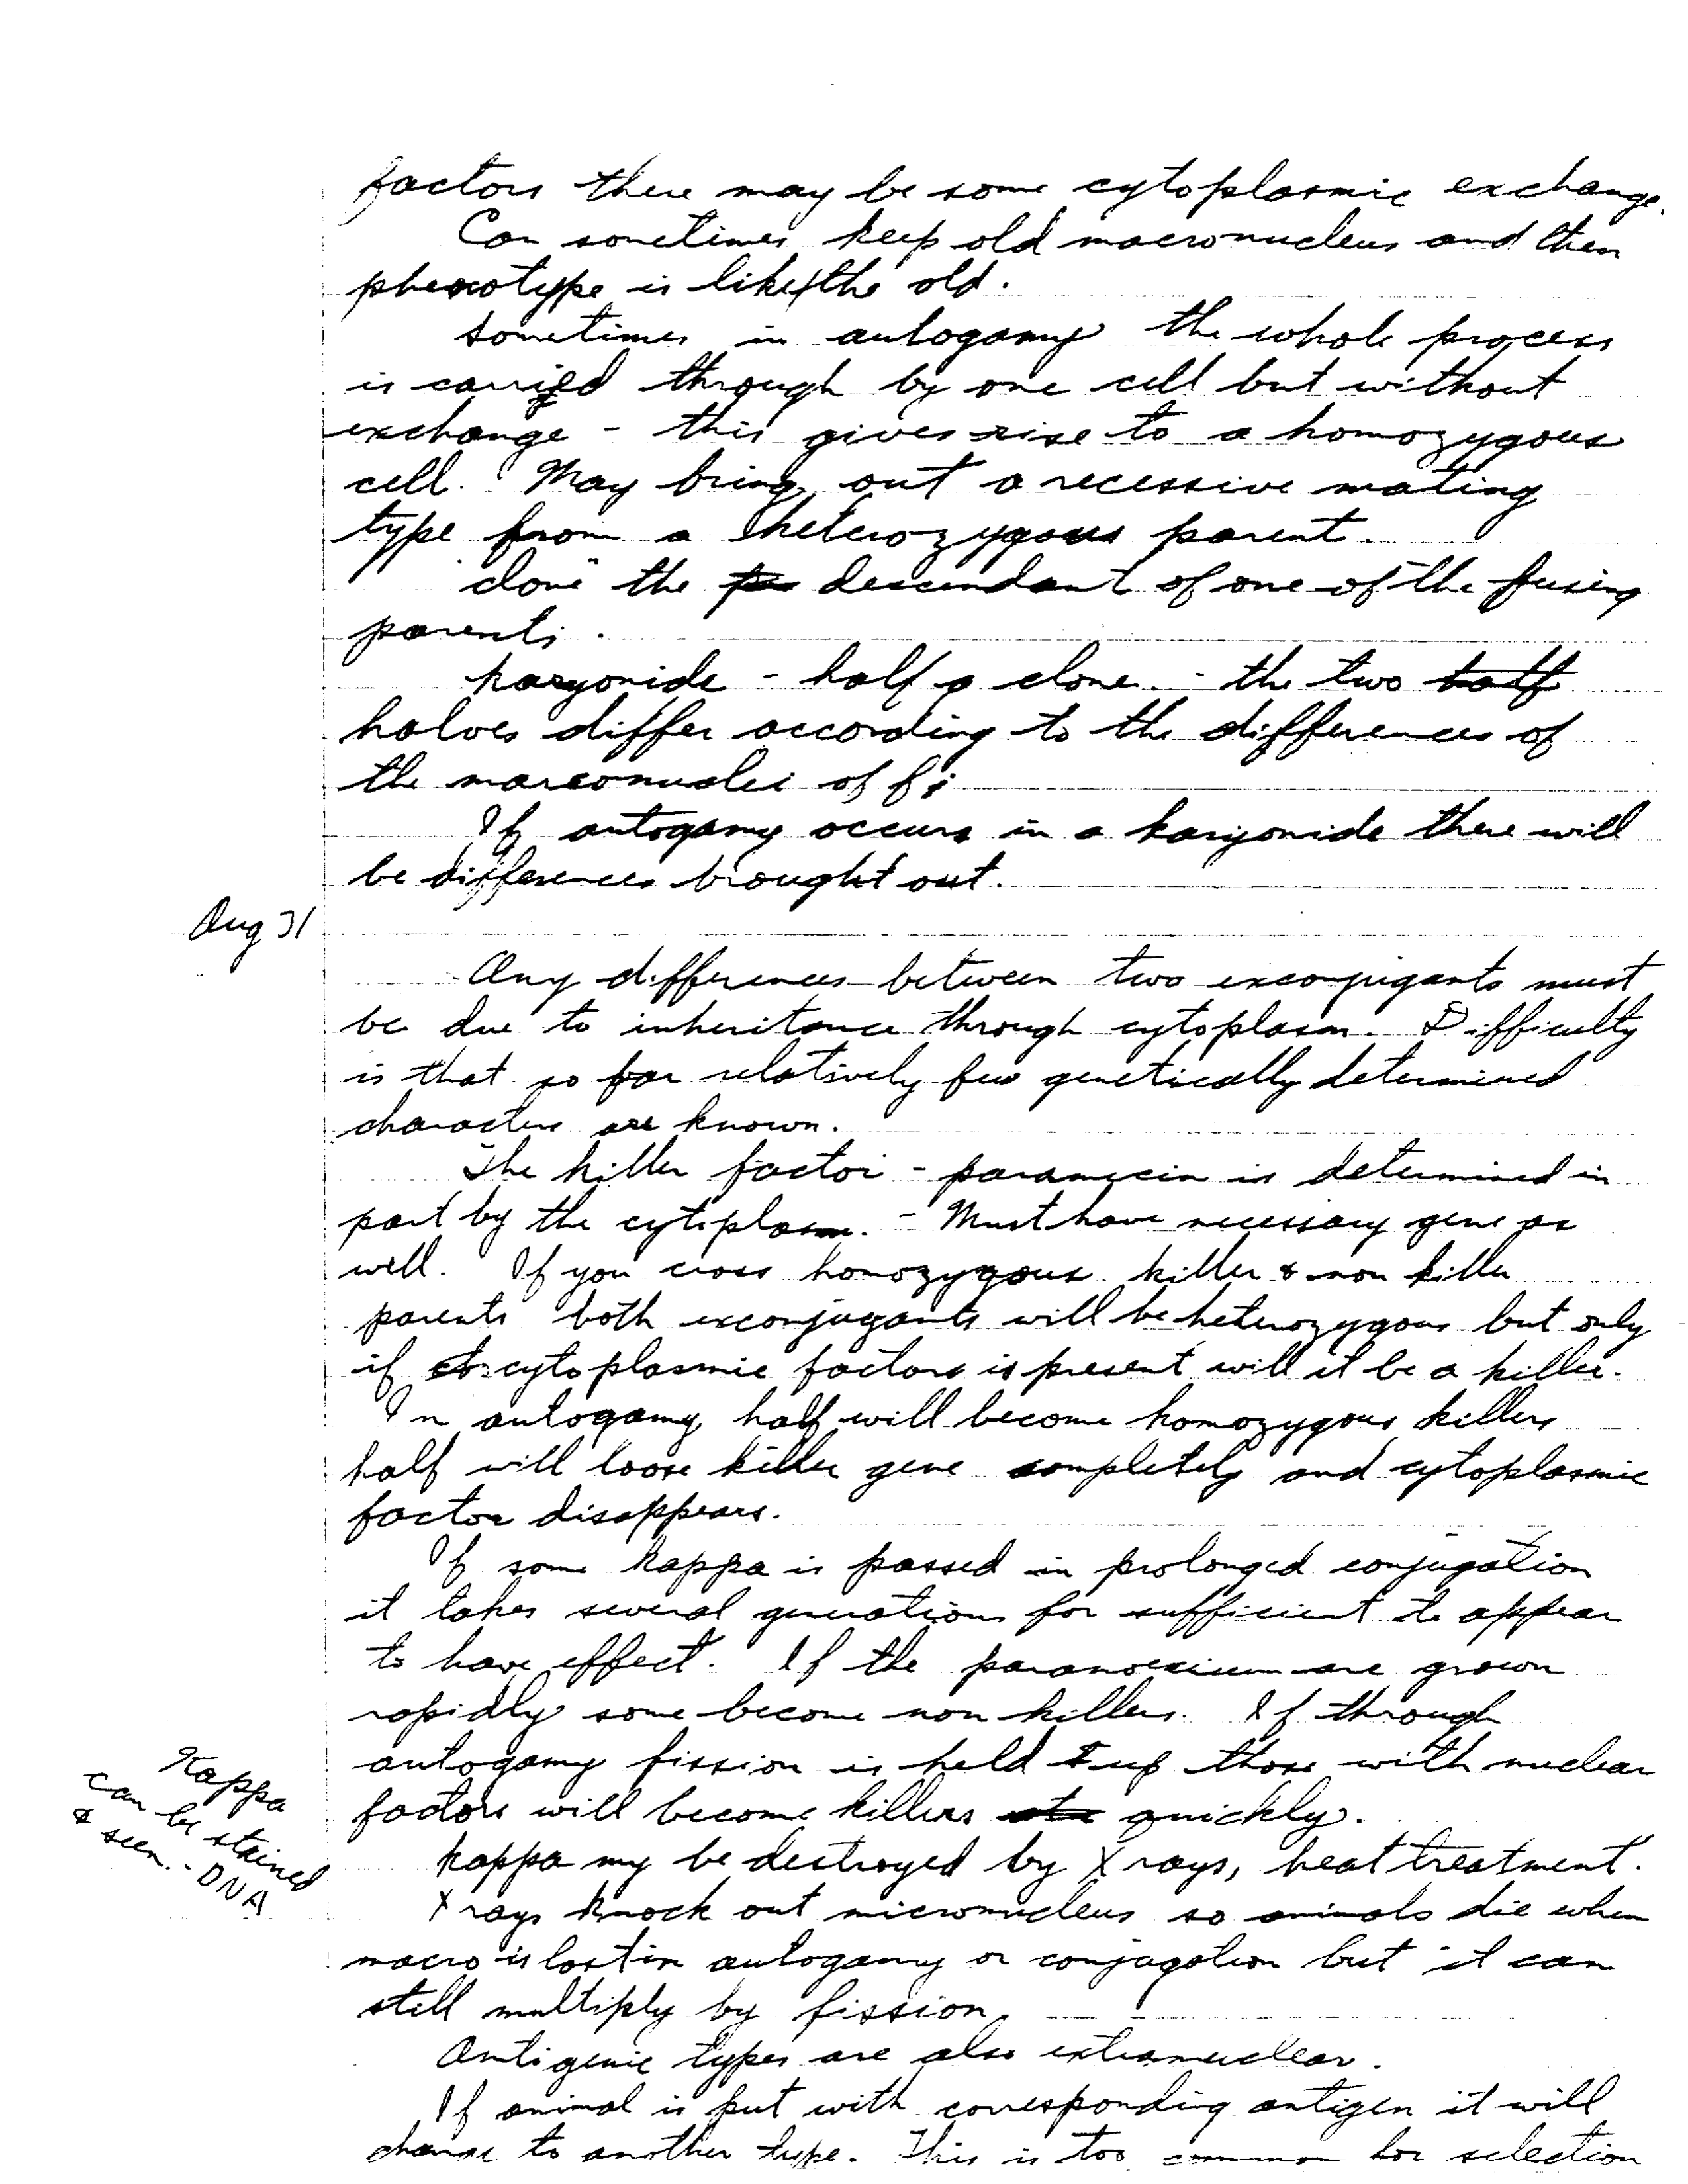 factors there may be some cytoplasmic exchange.
Can sometimes keep old macronucleus and then
phenotype is like the old.
Sometimes in autogamy the whole process
is carried through by one cell but without
exchange - this gives rise to a homozygous
cell. May bring out a recessive mating
type from a heterozygous parent.
"clone" the descendant of one of the fusing
parents.
karyonide - half a clone. - the two half
halves differ according to the differences of
the marconuclei of f1
If autogamy occurs in a karyonide there will
be differences brought out.
Aug 31
Any differences between two exconjugants must
be due to inheritance through cytoplasm. Difficulty
is that so far relatively few genetically determined
characters are known.
The killer factor - paramecin is determined in
part by the cytoplasm. - Must have necessary gene as
well. If you cross homozygous killer & non killer
parents both exconjugants will be heterozygous but only
if cytoplasmic factors is present will it be a killer.
In autogamy half will become homozygous killers
half will loose killer gene completely and cytoplasmic
factor disappears.
If some kappa is passed in prolonged conjugation
it takes several generations for sufficient to appear
to have effect. If the paramoecium are grown
rapidly some become non killers. If through
autogamy fission is held up those with nuclear
factors will become killers quickly.
Kappa
can be stained
& seen. - DNA
kappa my be destroyed by X rays, heat treatment.
X rays knock out micronucleus so animals die when
macro is lost in autogamy or conjugation but it can
still multiply by fission.
Antigenic types are also extranuclear.
If animal is put with corresponding antigen it will
change to another type. This is too common for selection